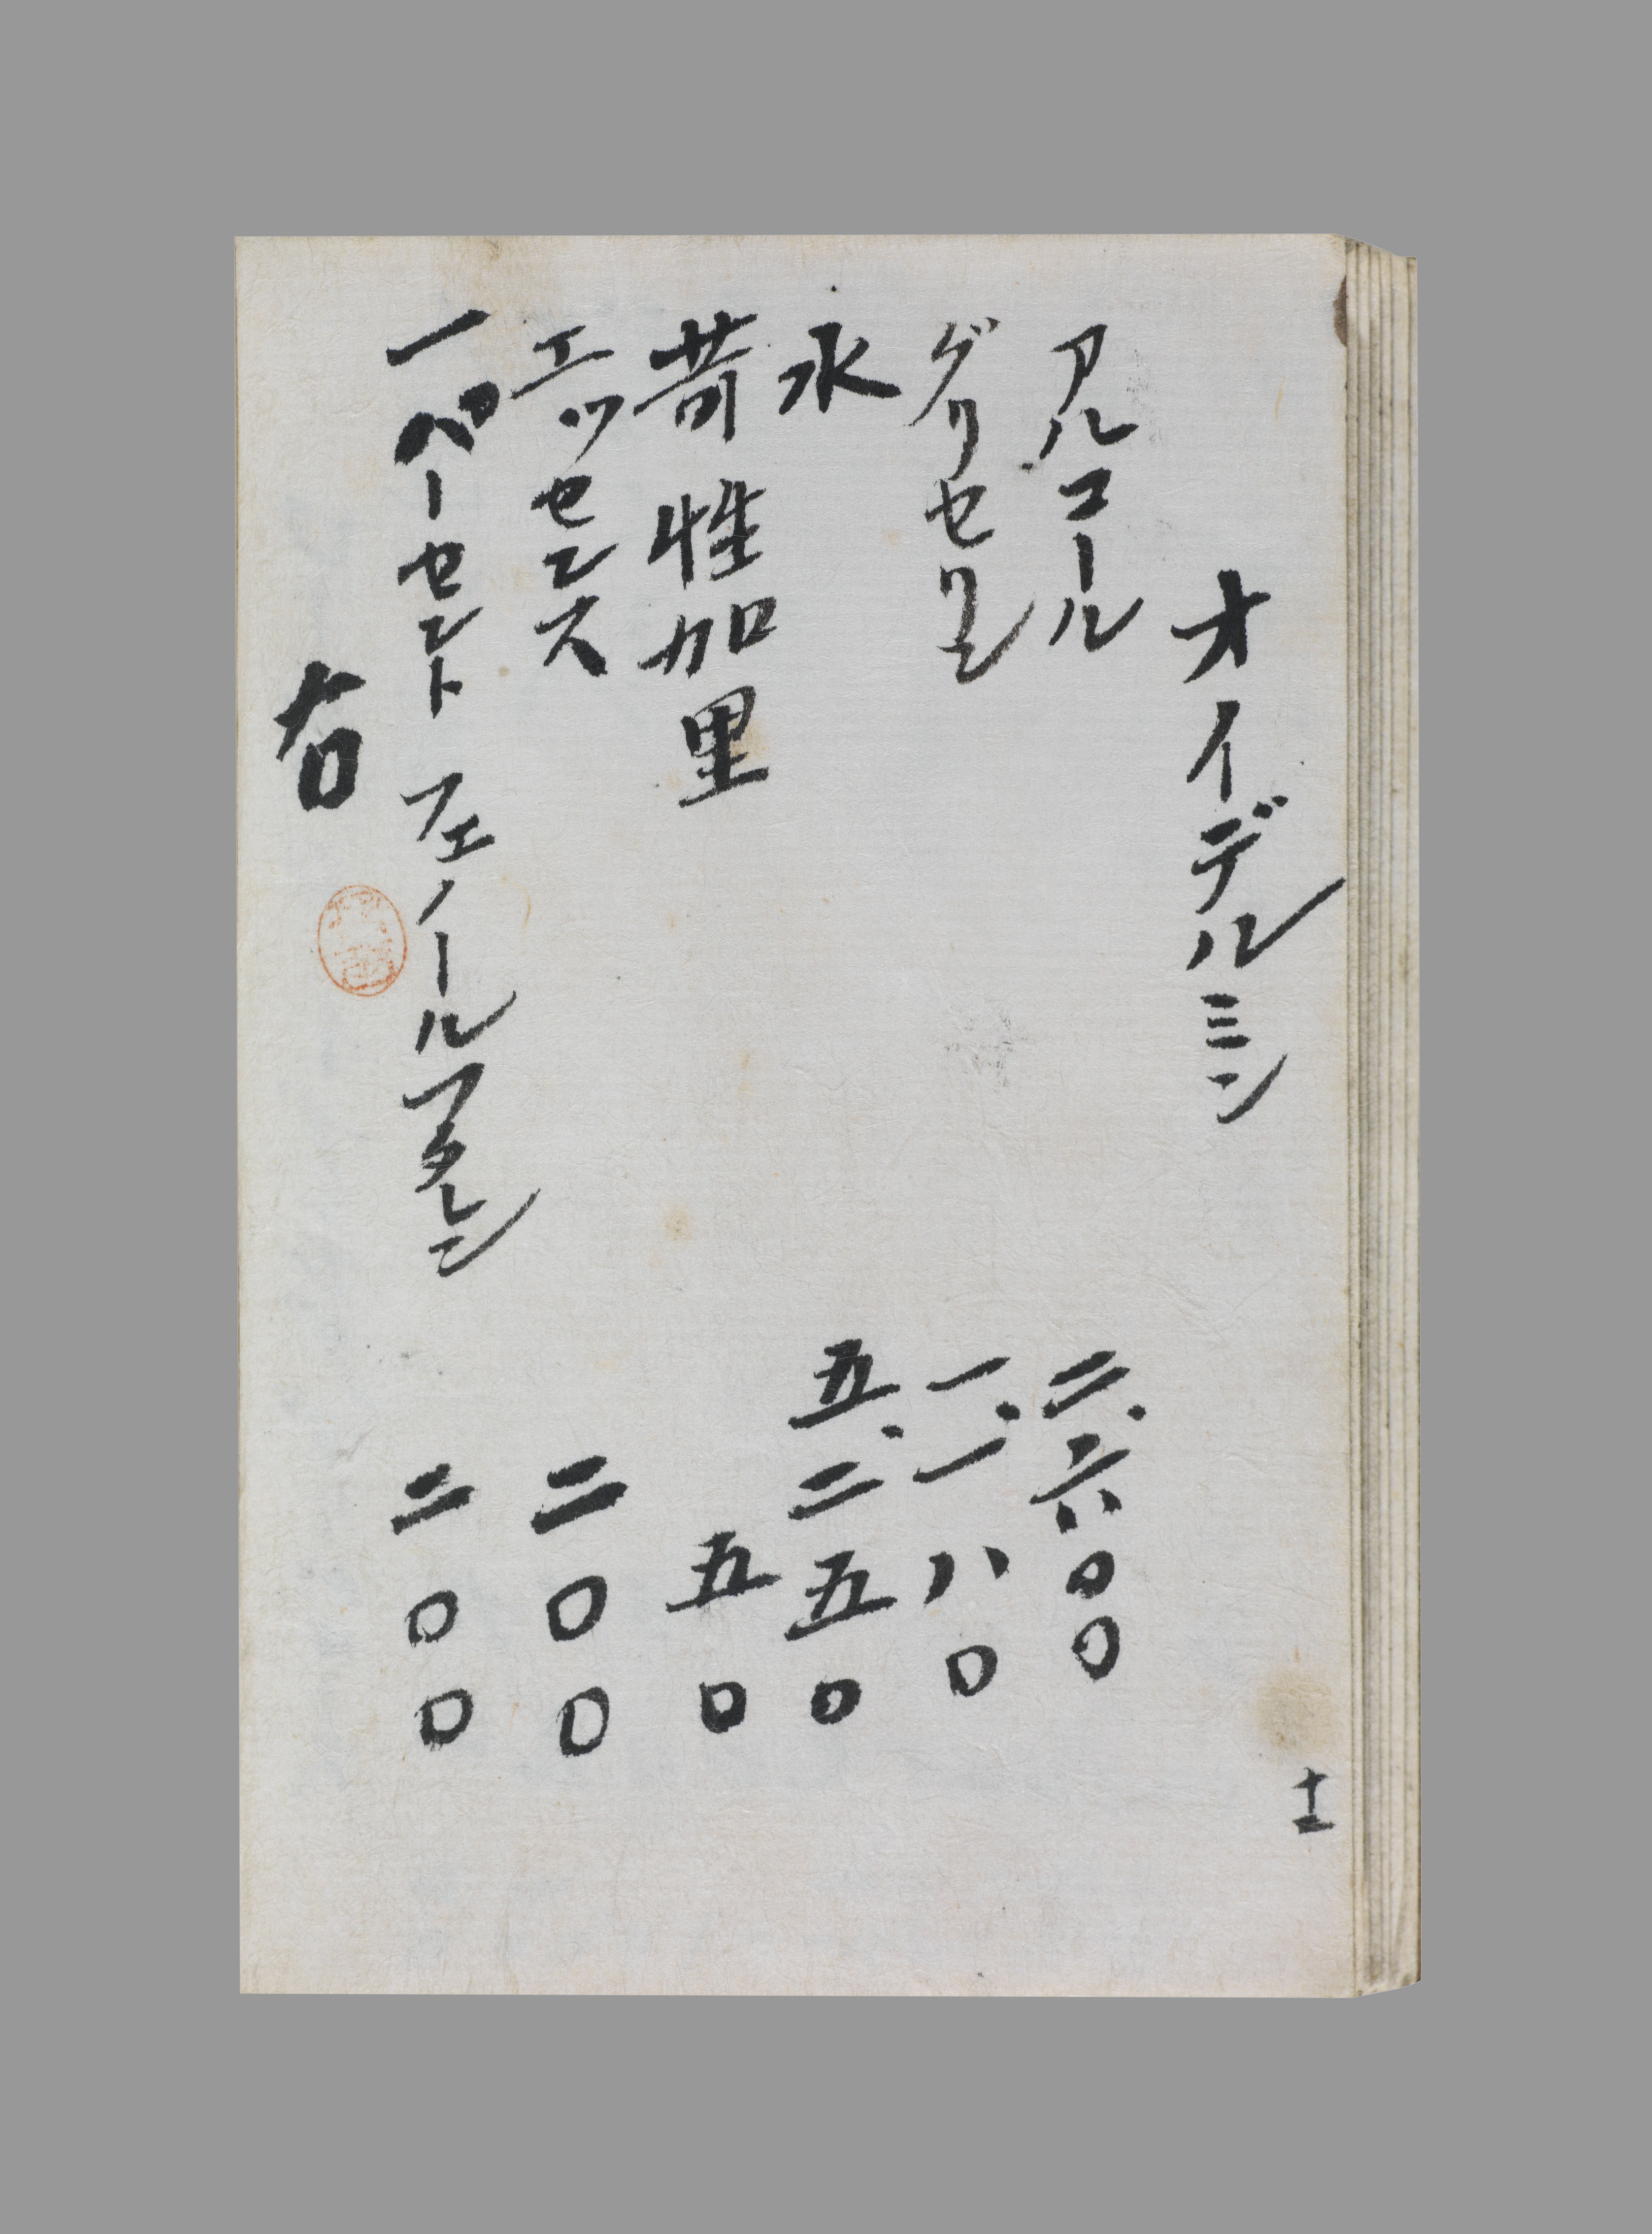 オイデルミン
アルコール　二.六〇〇
グリセリン　一.一八〇
水　五.二五〇
苛性加里　五〇
エッセンス　二〇〇
一ペーセント　フェノールフタレン　二〇〇
右